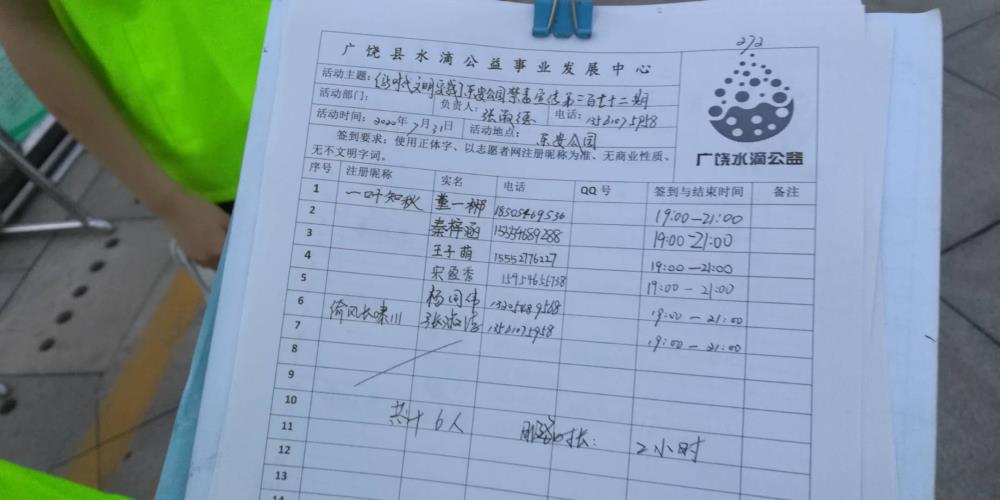 272
广饶县水滴公益事业发展中心
活动主题：新时代文明实践东安公园禁毒宣传第二百七十二期
活动部门： 负责人：张淑德 电话：13561075958
活动时间：2020年7月31日 活动地点：东安公园
签到要求：使用正体字、以志愿者网注册昵称为准、无商业性质、
无不文明字词。
广饶水滴公益
序号 注册昵称 实名 电话 QQ号 签到与结束时间 备注
1 一叶知秋 董一梆 18505469536 19:00—21:00
2 秦梓涵 15354689288 19:00—21:00
3 王子萌 15552776227 19:00—21:00
4 宋盈秀 19:00—21:00
5 杨同伟 19:00—21:00
6 倚风长啸川 13561075958 19:00—21:00
7
8
9
10
11 共计6人 服务时长：2小时
12
13
14